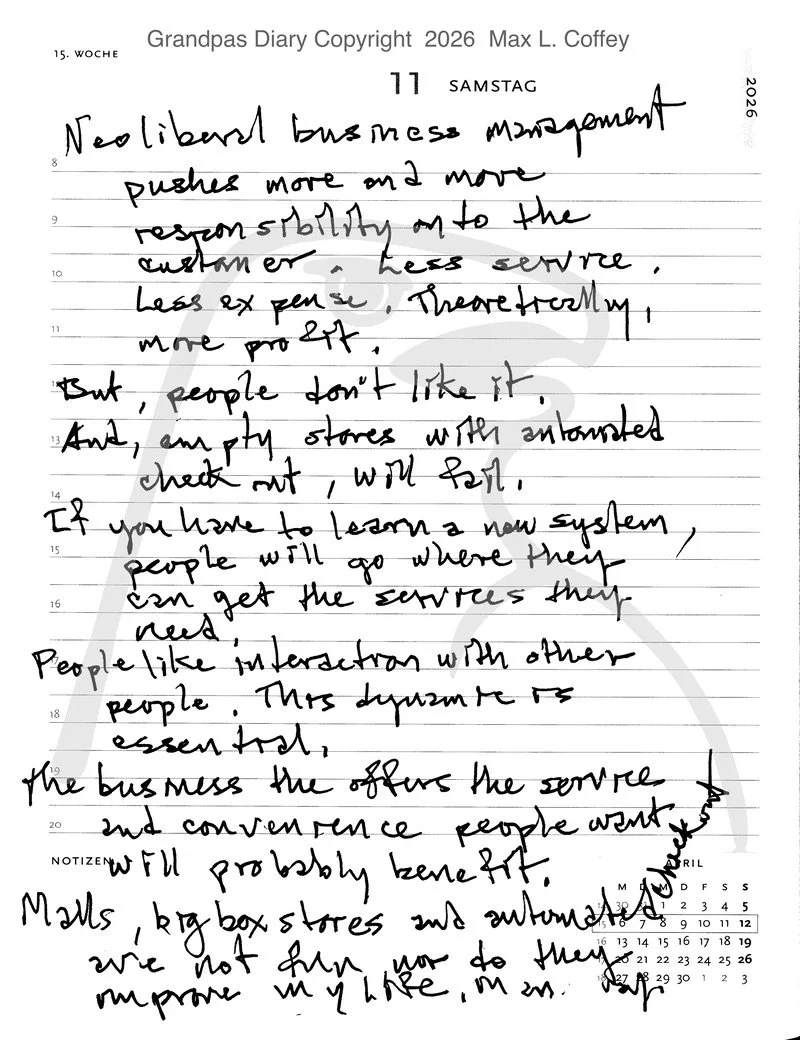 Grandpas Diary Copyright 2026 Max L. Coffey
15. WOCHE
11 SAMSTAG
2026
Neoliberal business management
8
pushes more and more
9
responsibility onto the
10
customer. Less service.
Less expense. Theoretically,
11
more profit.
But, people don't like it.
13
And, empty stores with automated
check out, will fail.
14
If you have to learn a new system,
15
people will go where they
16
can get the services they
need.
People like interaction with other
people. This dynamic is
18
essential.
19
The business the offers the service
20
and convenience people want
NOTIZEN
will probably benefit.
APRIL
Malls, big box stores and automated check out
are not fun nor do they
improve my life, in any way.
M D M D F S S
14 30 31 1 2 3 4 5
15 6 7 8 9 10 11 12
16 13 14 15 16 17 18 19
20 21 22 23 24 25 26
18 27 28 29 30 1 2 3